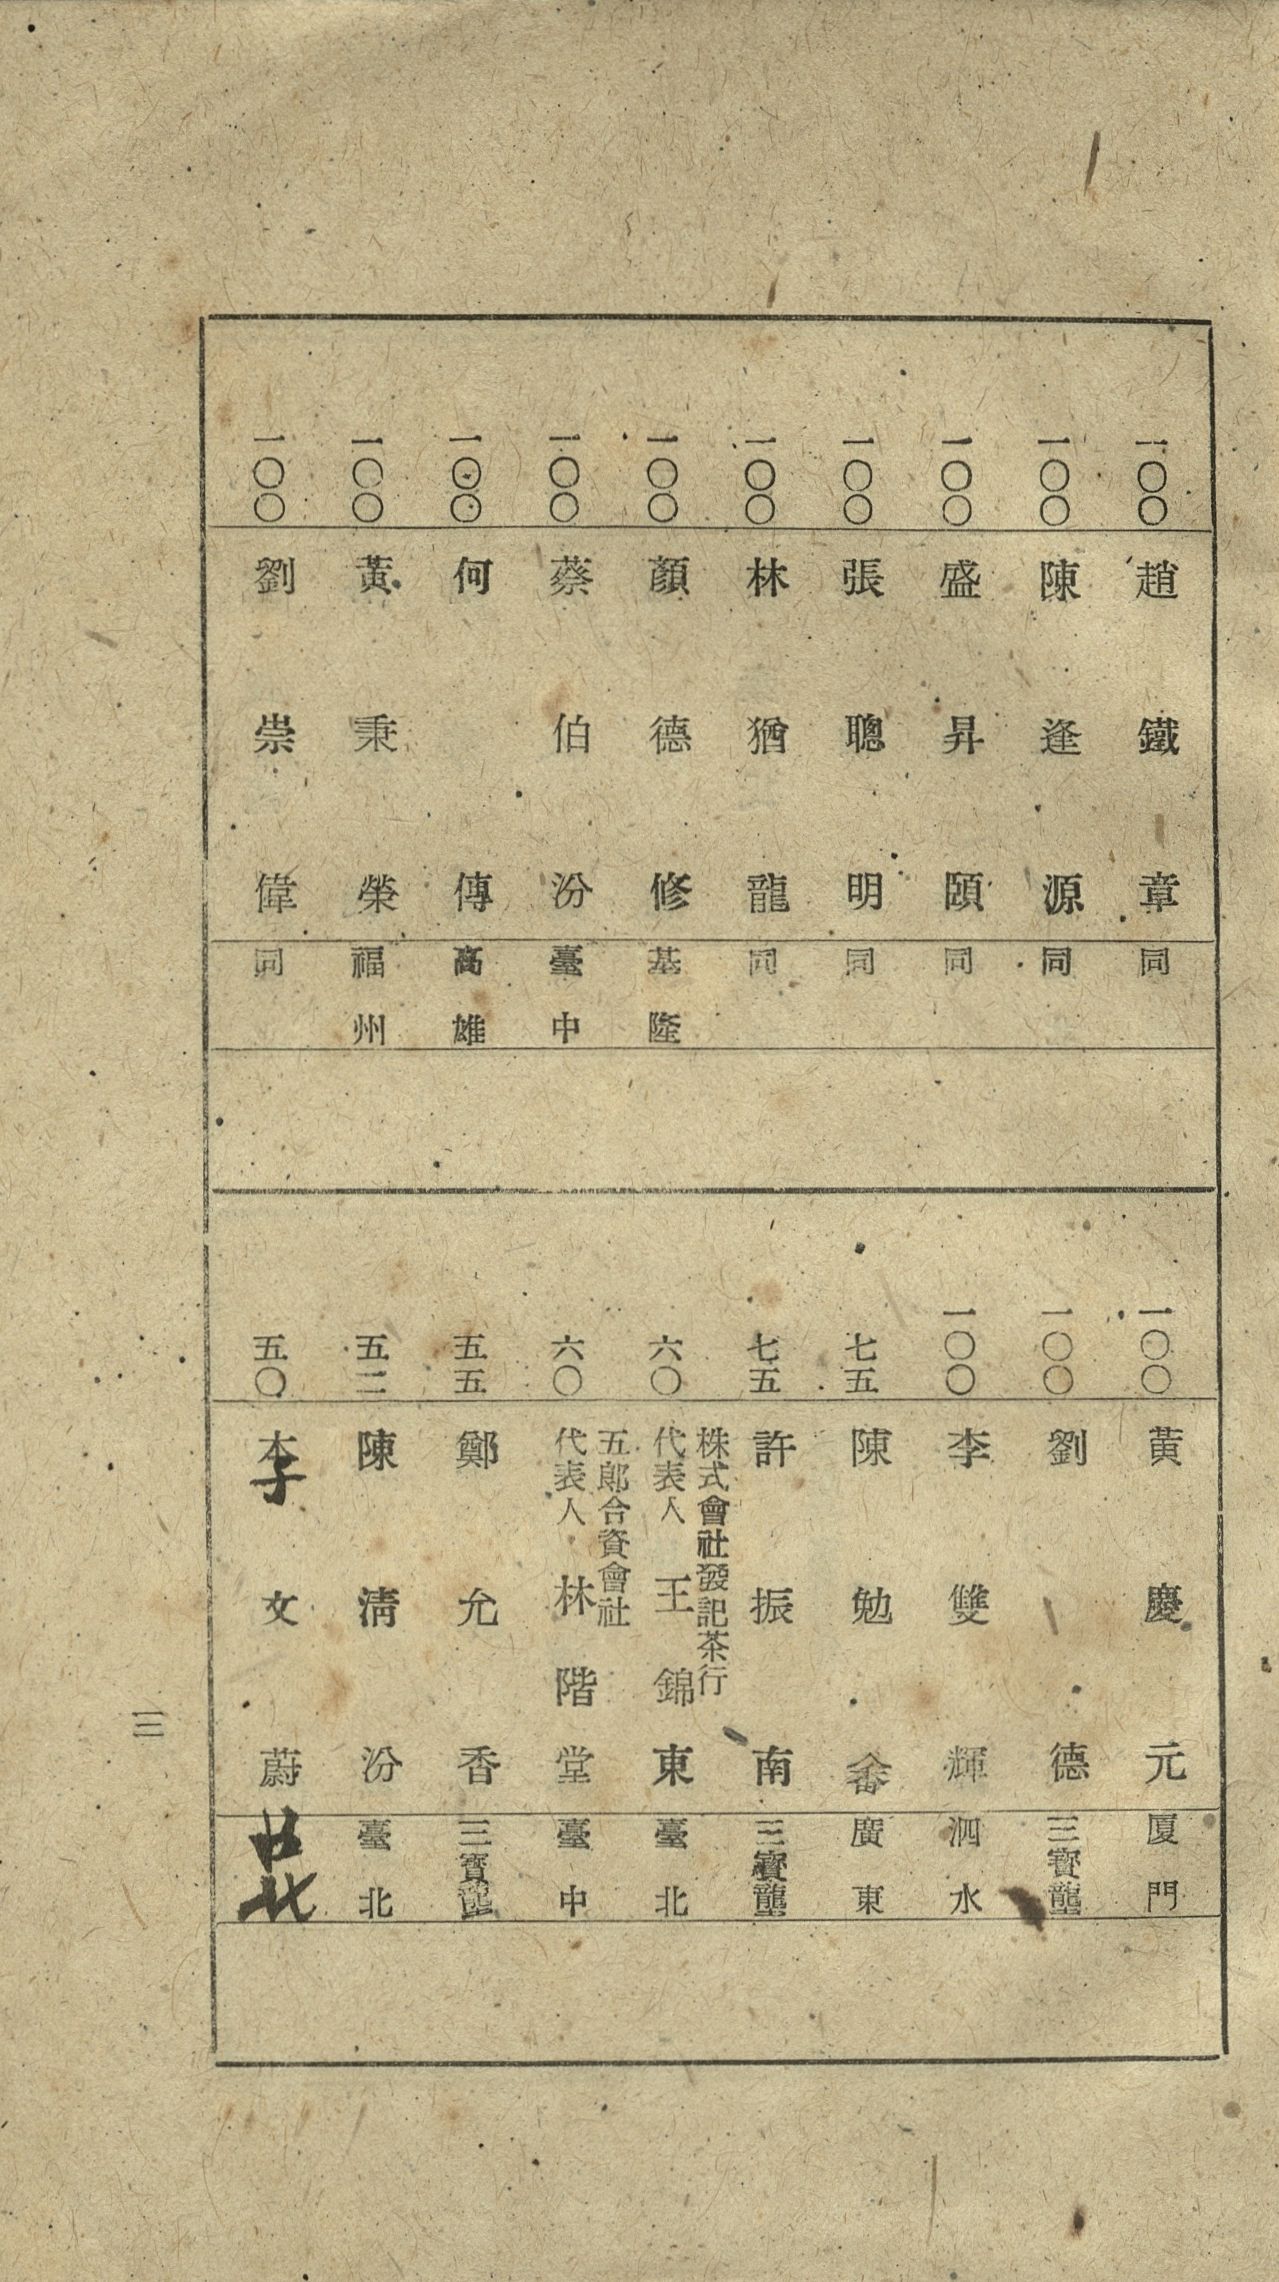 一〇〇 趙鐵章 同
一〇〇 陳逢源 同
一〇〇 盛昇頤 同
一〇〇 張聰明 同
一〇〇 林猶龍 同
一〇〇 顏德修 基隆
一〇〇 蔡伯汾 臺中
一〇〇 何傳 高雄
一〇〇 黃秉榮 福州
一〇〇 劉崇偉 同
一〇〇 黃慶元 厦門
一〇〇 劉德 三寶壟
一〇〇 李雙輝 泗水
七五 陳勉畬 廣東
七五 許振南 三寶壟
六〇 株式會社發記茶行
代表人 王錦東 臺北
六〇 五郎合資會社
代表人 林階堂 臺中
五五 鄭允香 三寶壟
五二 陳清汾 臺北
五〇 李文蔚 北
三